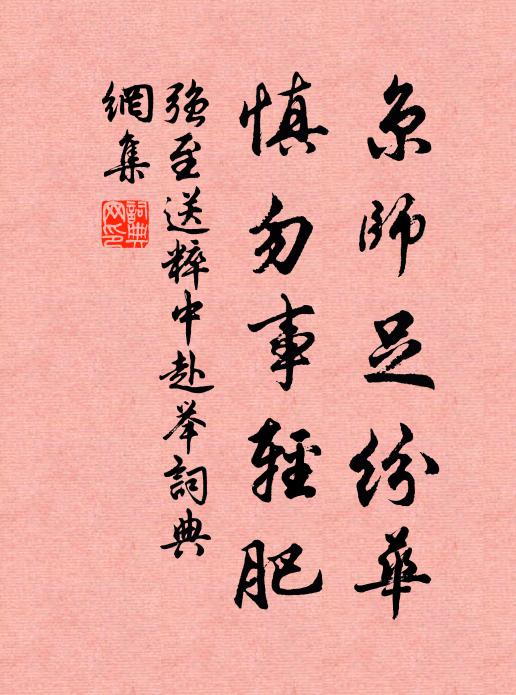 京師足紛華
慎勿事輕肥
強至送粹中赴举詞典
網集
詞典網印